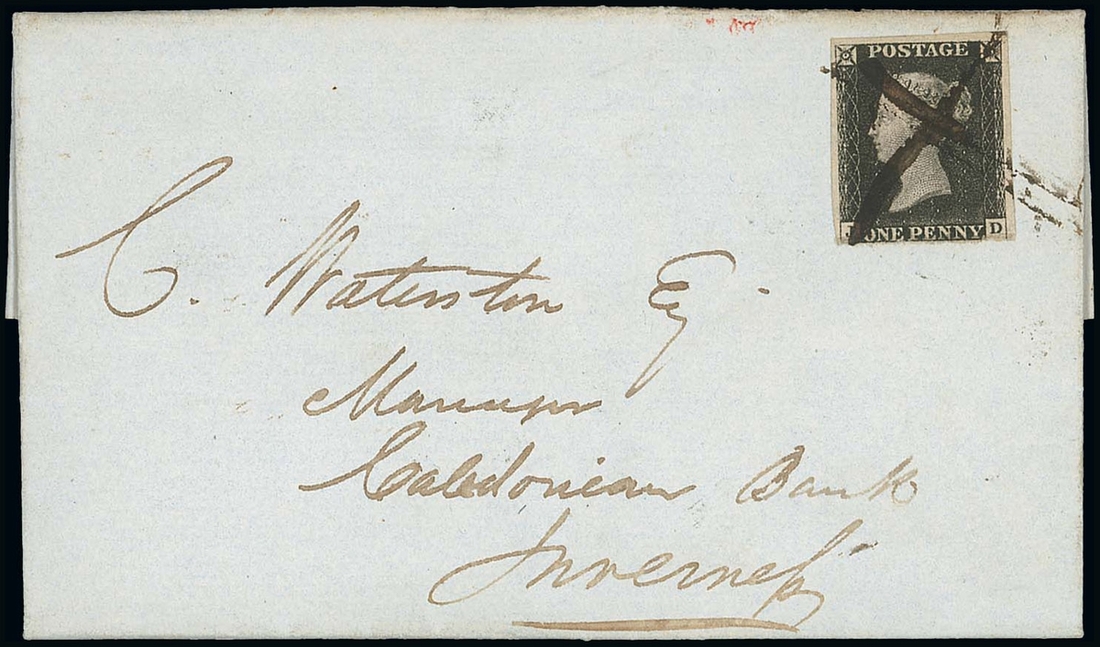 POSTAGE
J ONE PENNY D
C. Waterston Esq
Manager
Caledonian Bank
Inverness